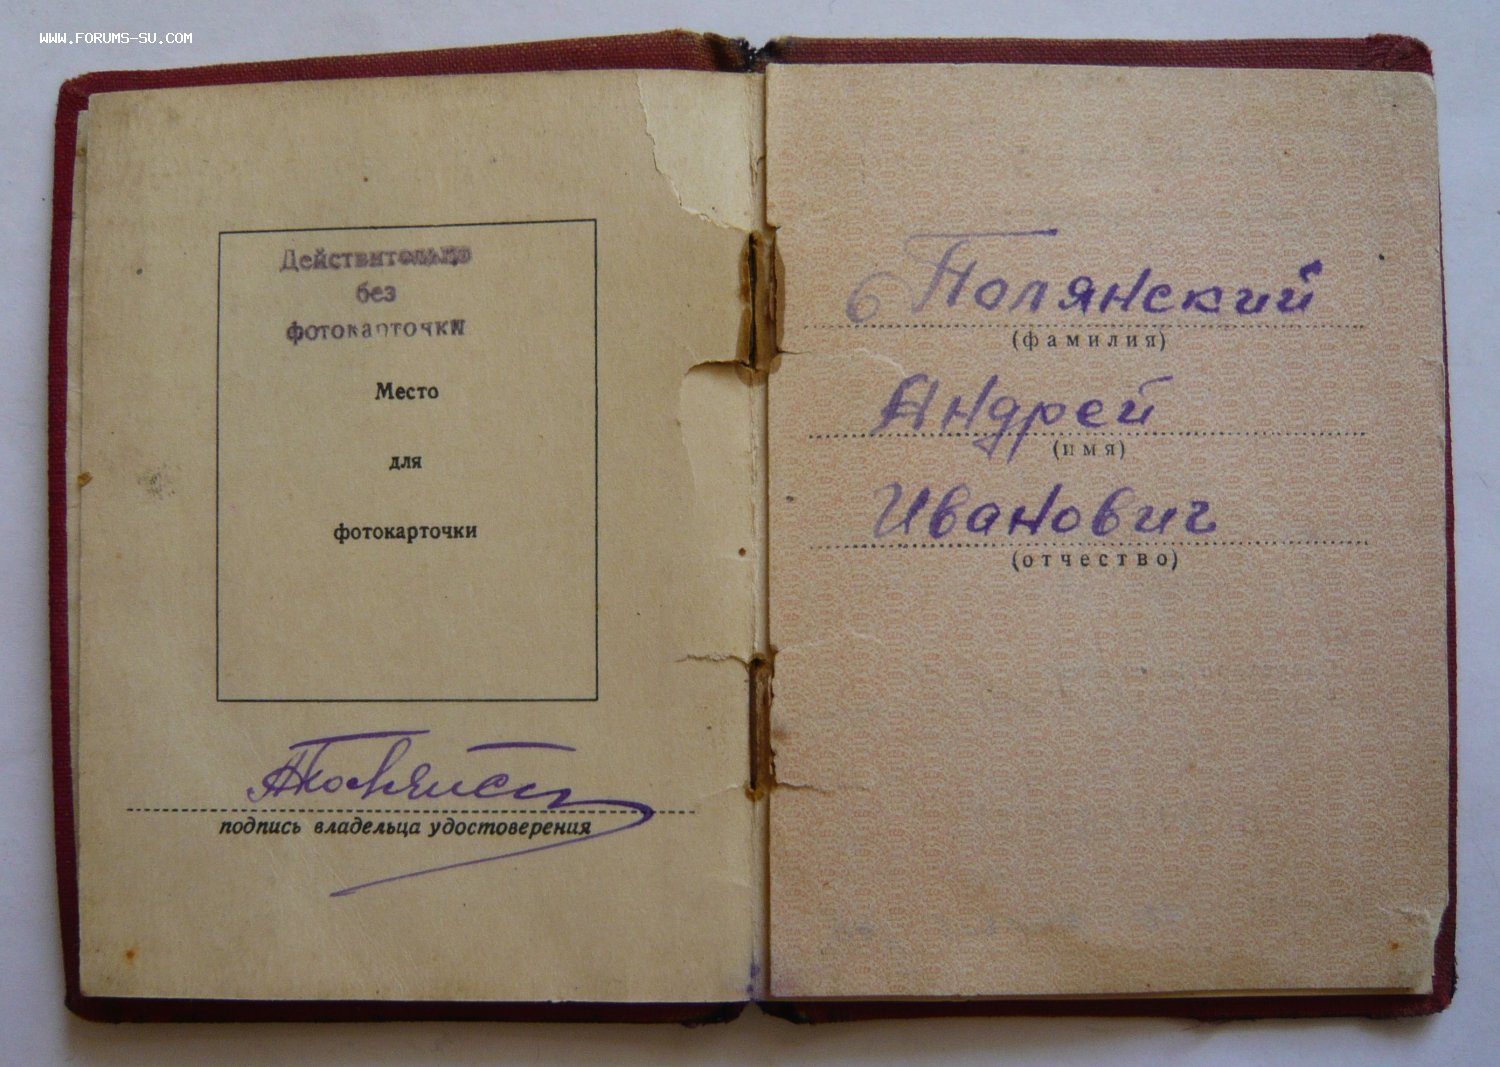 www.FORUMS-SU.COM
Действительно
без
фотокарточки
Место
для
фотокарточки
подпись владельца удостоверения
Полянский
(фамилия)
Андрей
(имя)
Иванович
(отчество)